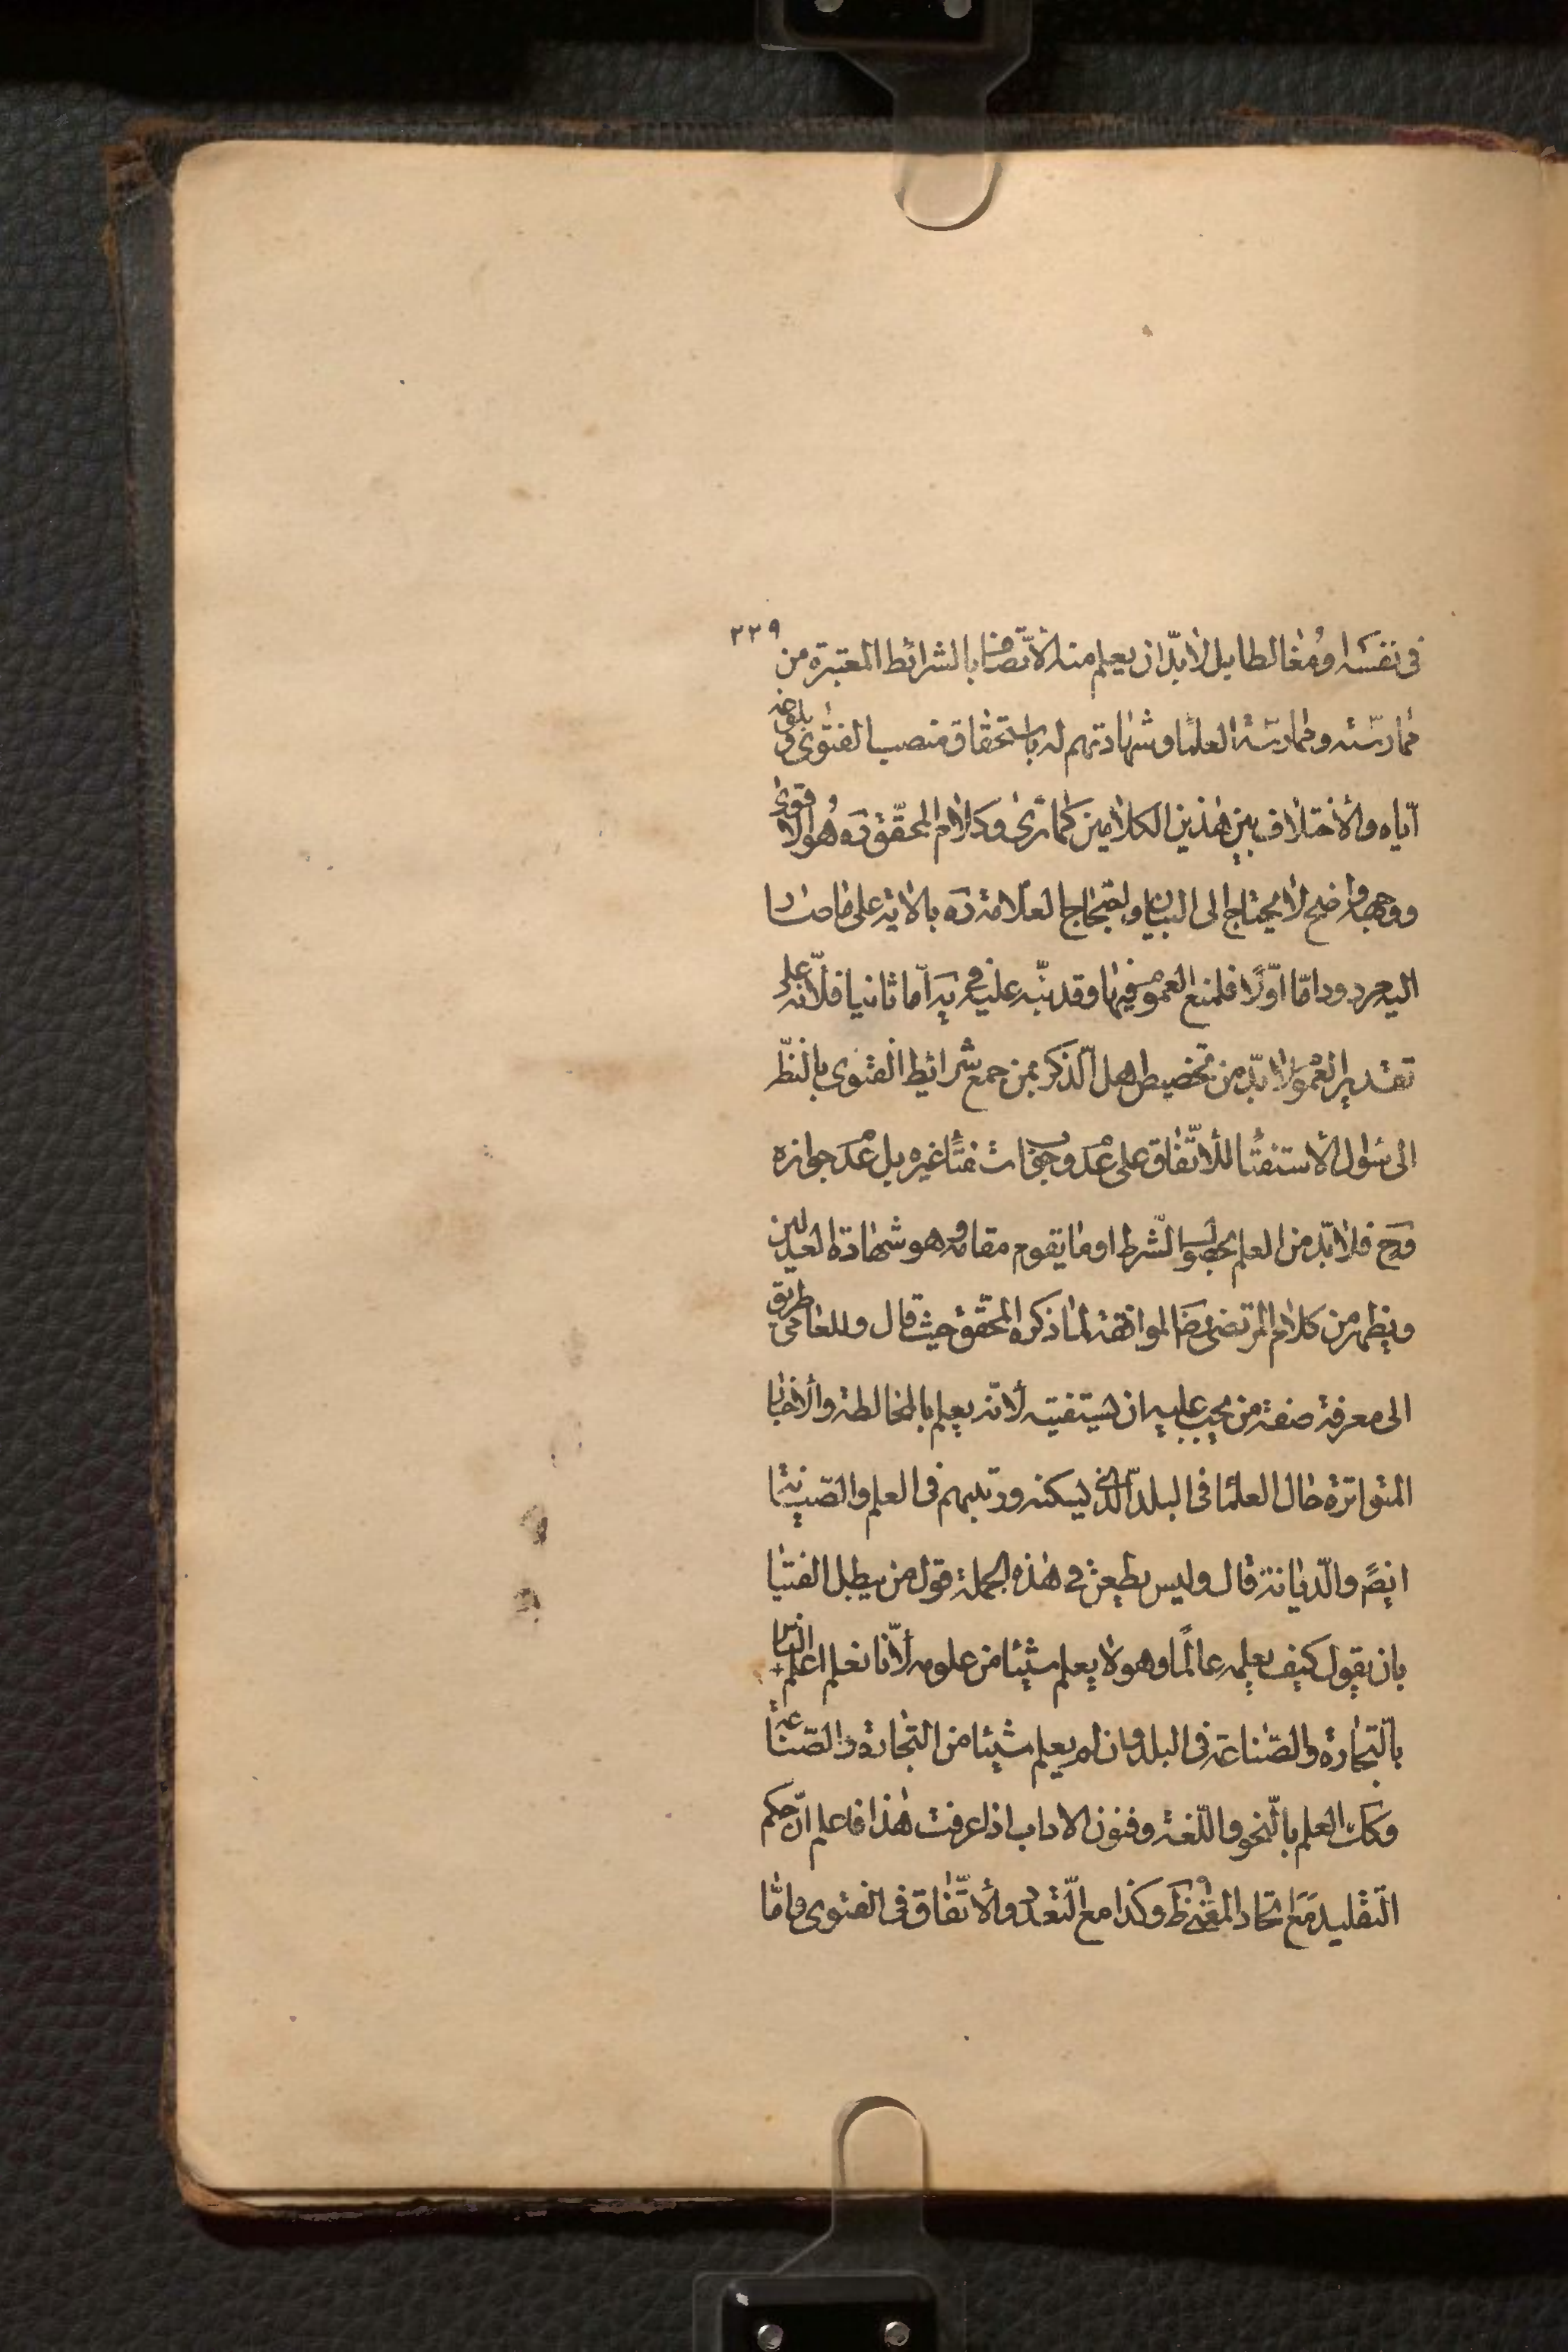 ٢٢٩
فى نفسه او مغالطا بل لا بدّ ان يعلم منه الاتّصاف بالشرائط المعتبرة من
ممارسته وممارسة العلما وشهادتهم له باستحقاق منصب الفتوى و بلوغه
ايّاه والاختلاف بين هذين الكلامين كما ترى وكلام المحقّق ره هو الاقوى
ووجهه واضح لا يحتاج الى البيان واحتجاج العلامة ره بالاية على ما صار
اليه مردود امّا اوّلا فلمنع العموم فيها وقد نبّه عليه فى يه امّا ثانيا فلانّه على
تقدير العموم لا بدّ من تخصيص اهل الذّكر بمن جمع شرائط الفتوى بالنّظر
الى سؤال الاستفتا للاتّفاق على عدم وجوب استفتا غيره بل عدم جوازه
وح فلا بدّ من العلم بحصول الشّرط او ما يقوم مقامه وهو شهادة العدلين
ويظهر من كلام المرتضى رض الموافقة لما ذكره المحقّق حيث قال وللعامى طريق
الى معرفة صفة من يجب عليه ان يستفتيه لانّه يعلم بالمخالطة والاخبار
المتواترة حال العلما فى البلد الّذى يسكنه ورتبهم فى العلم والصّيانة
ايضً والدّيانة قال وليس يطعن فى هذه الجملة قول من يبطل الفتيا
بان يقول كيف يعلمه عالمًا وهو لا يعلم شيئا من علومه لانّا نعلم اعلم النّاس
بالتّجارة والصّناعة فى البلد وان لم يعلم شيئا من التّجارة والصّناعة
وكك العلم بالنّحو واللّغة وفنون الاداب اذا عرفت هذا فاعلم انّ حكم
التّقليد مع اتحاد المفتى ظ وكذا مع التّعدد والاتّفاق فى الفتوى وامّا